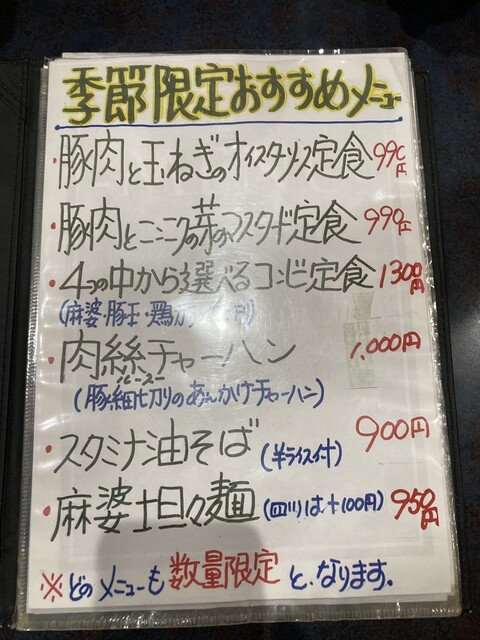 季節限定おすすめメニュー
・豚肉と玉ねぎのオイスターソース定食 990円
・豚肉とニンニクの芽のマスタード定食 990円
・4つの中から選べるコンビ定食 1300円
(麻婆・豚玉・鶏カ
・肉絲チャーハン 1,000円
ルースー
(豚細切りのあんかけチャーハン)
・スタミナ油そば (半ライス付) 900円
・麻婆坦々麺 (四川は+100円) 950円
※どのメニューも数量限定と、なります。